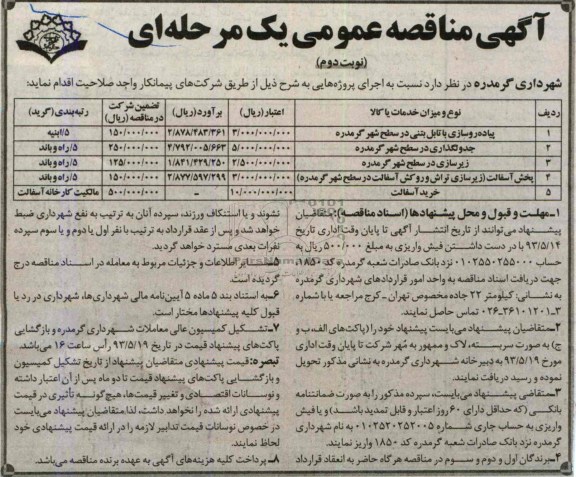 آگهی مناقصه عمومی یک مرحله‌ای
(نوبت دوم)
شهرداری گرمدره در نظر دارد نسبت به اجرای پروژه‌هایی به شرح ذیل از طریق شرکت‌های پیمانکار واجد صلاحیت اقدام نماید:
ردیف نوع و میزان خدمات یا کالا اعتبار (ریال) برآورد (ریال) تضمین شرکت در مناقصه (ریال) رتبه‌بندی (گرید)
۱ پیاده‌روسازی با تایل بتنی در سطح شهر گرمدره ۳/۰۰۰/۰۰۰/۰۰۰ ۲/۸۷۸/۲۸۳/۳۶۱ ۱۵۰/۰۰۰/۰۰۰ ۵/ابنیه
۲ جدولگذاری در سطح شهر گرمدره ۵/۰۰۰/۰۰۰/۰۰۰ ۴/۷۹۲/۰۰۵/۶۶۳ ۲۵۰/۰۰۰/۰۰۰ ۵/راه و باند
۳ زیرسازی در سطح شهر گرمدره ۲/۵۰۰/۰۰۰/۰۰۰ ۱/۸۴۱/۳۲۹/۲۵۰ ۱۲۵/۰۰۰/۰۰۰ ۵/راه و باند
۴ پخش آسفالت (زیرسازی تراش و روکش آسفالت در سطح شهر گرمدره) ۳/۰۰۰/۰۰۰/۰۰۰ ۲/۸۷۷/۵۹۷/۲۹۹ ۱۵۰/۰۰۰/۰۰۰ ۵/راه و باند
۵ خرید آسفالت ۱۰/۰۰۰/۰۰۰/۰۰۰ - ۵۰۰/۰۰۰/۰۰۰ مالکیت کارخانه آسفالت
۱-مهلت و قبول و محل پیشنهادها (اسناد مناقصه): متقاضیان
پیشنهاد می‌توانند از تاریخ انتشار آگهی تا پایان وقت اداری تاریخ
۹۳/۵/۱۴ با در دست داشتن فیش واریزی به مبلغ ۵۰۰/۰۰۰ ریال به
حساب ۰۱۰۲۵۵۰۲۵۵۰۰۰ نزد بانک صادرات شعبه گرمدره کد ۱۸۵۰،
جهت دریافت اسناد مناقصه به واحد امور قراردادهای شهرداری گرمدره
به نشانی: کیلومتر ۲۲ جاده مخصوص تهران - کرج مراجعه یا با شماره
۳-۰۲۶-۳۶۱۰۱۲۰۱ تماس حاصل نمایند.
۲-متقاضیان پیشنهاد می‌بایست پیشنهاد خود را (پاکت‌های الف، ب و
ج) به صورت سربسته، لاک و ممهور به مُهر شرکت تا پایان وقت اداری
مورخ ۹۳/۵/۱۹ به دبیرخانه شهرداری گرمدره به نشانی مذکور تحویل
نموده و رسید دریافت نمایند.
۳-متقاضی پیشنهاد می‌بایست، سپرده مذکور را به صورت ضمانتنامه
بانکی (که حداقل دارای ۶۰ روز اعتبار و قابل تمدید باشد) و یا فیش
واریزی به حساب جاری شماره ۰۱۰۲۵۲۰۲۵۲۰۰۵ به نام شهرداری
گرمدره نزد بانک صادرات شعبه گرمدره کد ۱۸۵۰ واریز نمایند.
۴-برندگان اول و دوم و سوم در مناقصه هرگاه حاضر به انعقاد قرارداد
نشوند و یا استنکاف ورزند، سپرده آنان به ترتیب به نفع شهرداری ضبط
خواهد شد و پس از عقد قرارداد به ترتیب با نفر اول یا دوم و یا سوم سپرده
نفرات بعدی مسترد خواهد گردید.
۵-سایر اطلاعات و جزئیات مربوط به معامله در اسناد مناقصه درج
گردیده است.
۶-به استناد بند ۵ ماده ۵ آیین‌نامه مالی شهرداری‌ها، شهرداری در رد یا
قبول کلیه پیشنهادها مختار است.
۷-تشکیل کمیسیون عالی معاملات شهرداری گرمدره و بازگشایی
پاکت‌های پیشنهاد قیمت در تاریخ ۹۳/۵/۱۹ رأس ساعت ۱۶ می‌باشد.
تبصره: قیمت پیشنهادی متقاضیان پیشنهاد از تاریخ تشکیل کمیسیون
و بازگشایی پاکت‌های پیشنهاد قیمت تا دو ماه پس از آن اعتبار داشته
و نوسانات اقتصادی و تغییر قیمت‌ها، هیچ‌گونه تأثیری در قیمت
پیشنهادی ارائه شده را نخواهد داشت، لذا متقاضیان پیشنهاد می‌بایست
در خصوص نوسانات قیمت تدابیر لازمه را در ارائه قیمت پیشنهادی خود
لحاظ نمایند.
۸-پرداخت کلیه هزینه‌های آگهی به عهده برنده مناقصه می‌باشد.